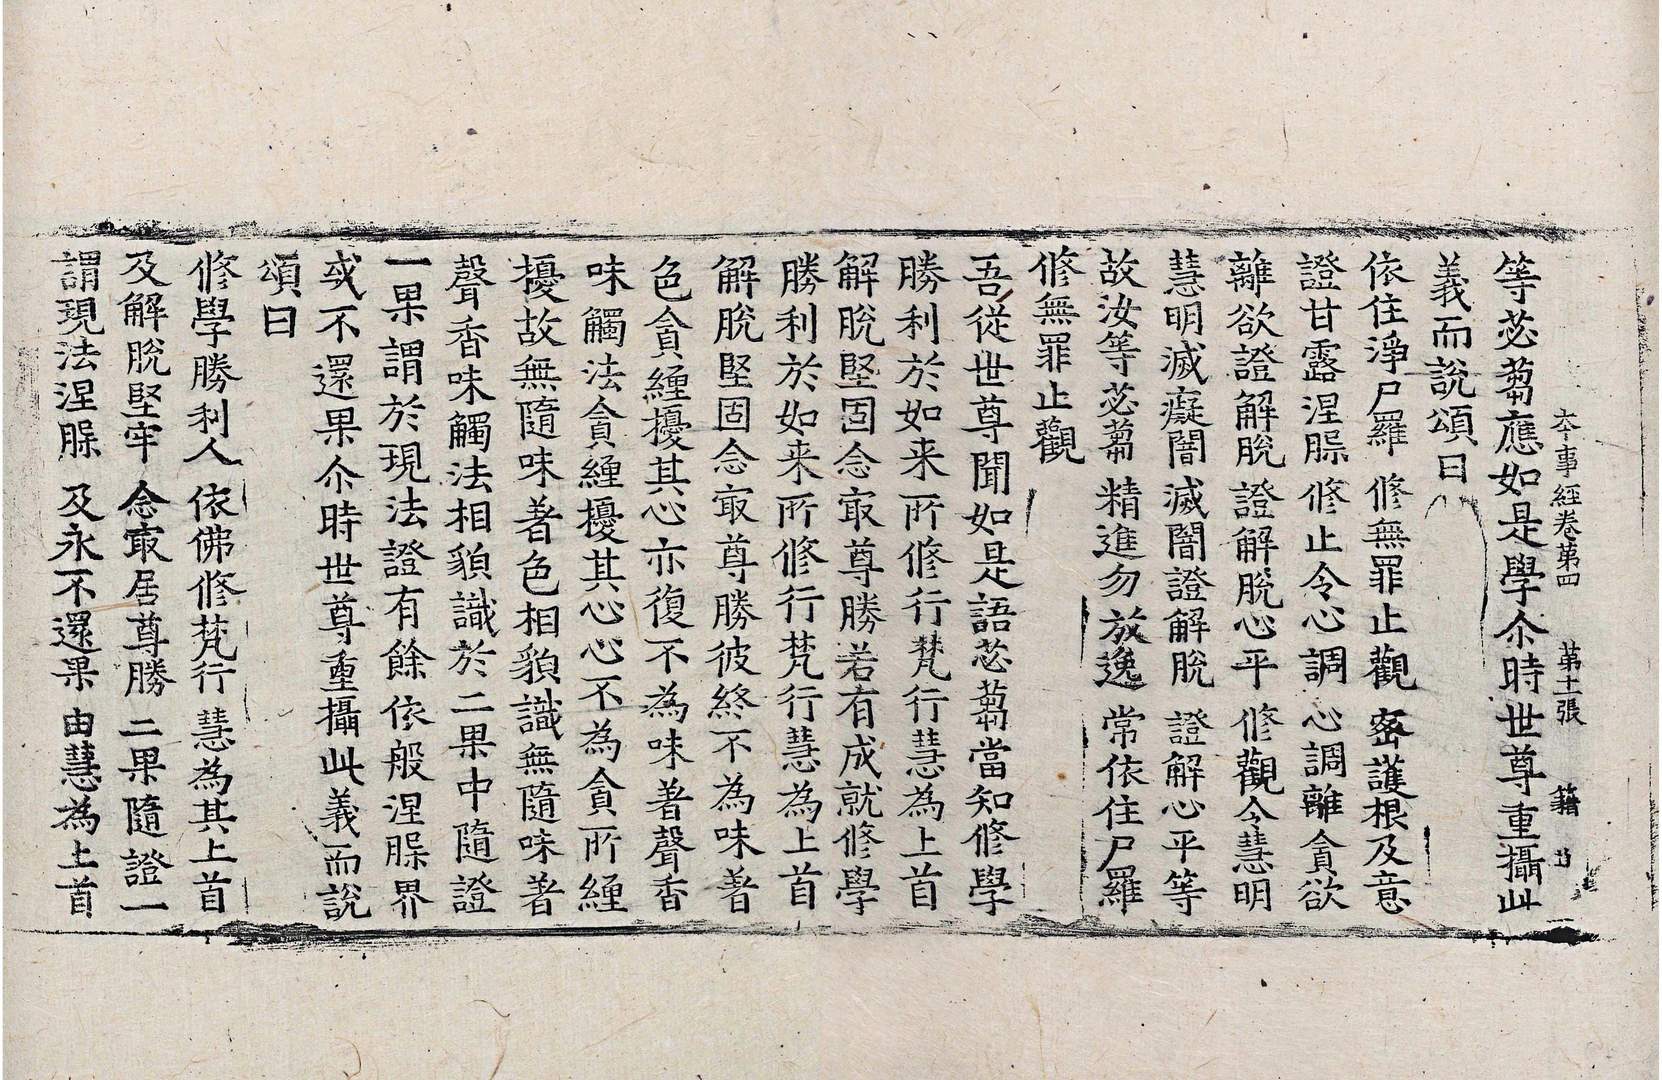 本事經卷第四 第十一張 籍
等苾蒭應如是學尒時世尊重攝此
義而說頌曰
依住淨尸羅 修無罪止觀 密護根及意
證甘露涅槃 修止令心調 心調離貪欲
離欲證解脫 證解脫心平 修觀令慧明
慧明滅癡闇 滅闇證解脫 證解心平等
故汝等苾蒭 精進勿放逸 常依住尸羅
修無罪止觀
吾從世尊聞如是語苾蒭當知修學
勝利於如来所修行梵行慧為上首
解脫堅固念㝡尊勝若有成就修學
勝利於如来所修行梵行慧為上首
解脫堅固念㝡尊勝彼終不為味著
色貪纏擾其心亦復不為味著聲香
味觸法貪纏擾其心心不為貪所纏
擾故無隨味著色相貌識無隨味著
聲香味觸法相貌識於二果中隨證
一果謂於現法證有餘依般涅槃界
或不還果尒時世尊重攝此義而說
頌曰
修學勝利人 依佛修梵行 慧為其上首
及解脫堅牢 念㝡居尊勝 二果隨證一
謂現法涅槃 及永不還果 由慧為上首